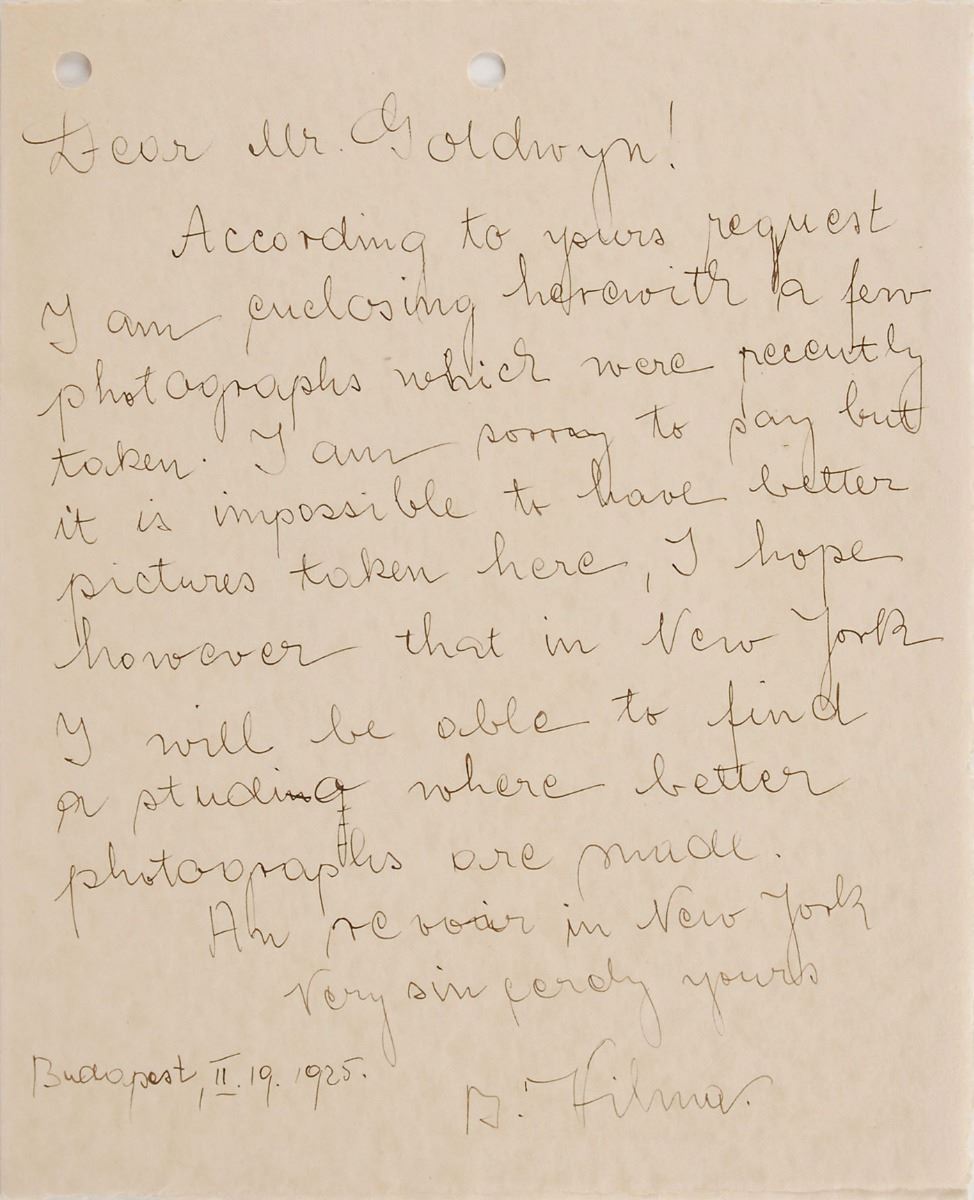 Dear Mr. Goldwyn!
According to yours request
I am enclosing herewith a few
photographs which were recently
taken. I am sorray to say but
it is impossible to have better
pictures taken here, I hope
however that in New York
I will be able to find
a studing where better
photographs are made.
Au revoir in New York
Very sincerely yours
Budapest, II. 19. 1925.
B. Vilma.